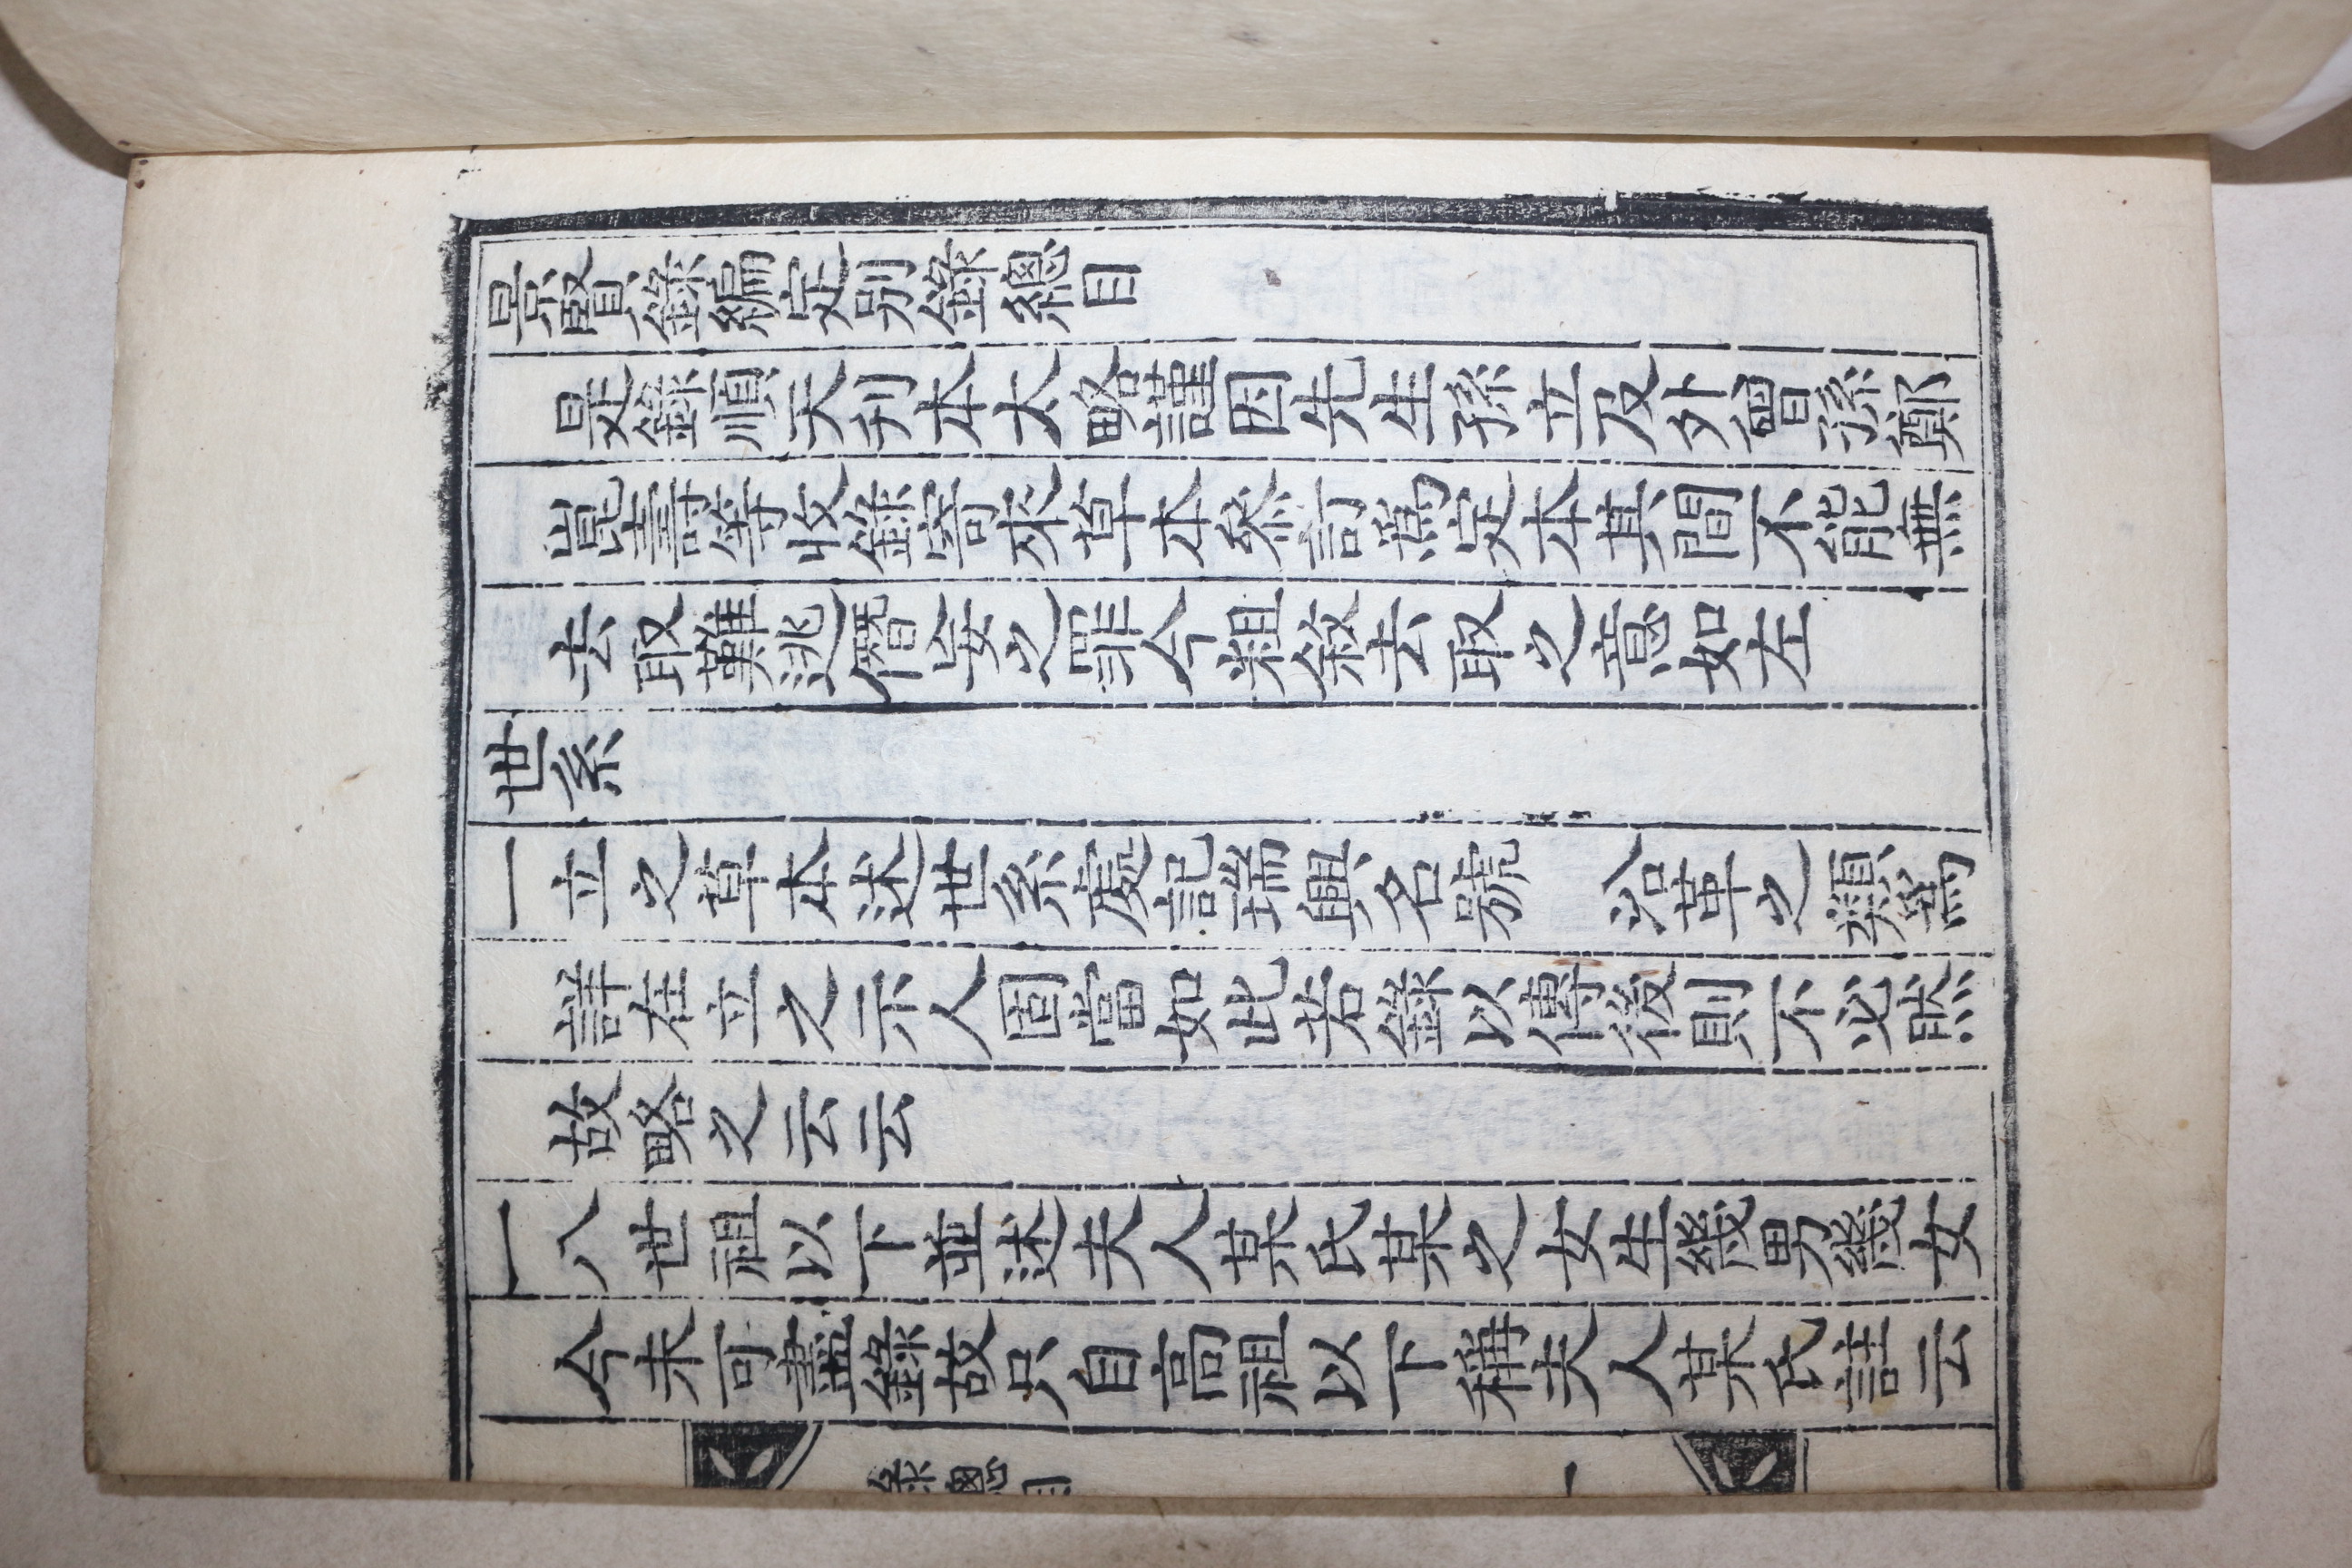 景賢錄編定別錄總目
是錄順天刋本太略謹因先生孫立及外曾孫鄭
崑壽等收錄寄來草本叅訂爲定本其間不能無
去取難逃僭妄之罪今粗敘去取之意如左
世系
一立之草本述世系處記瑞興名號 㳂革之類爲
詳在立之示人固當如此若錄以傳後則不必然
故略之云云
一八世祖以下並述夫人某氏某之女生幾男幾女
今未可盡錄故只自高祖以下稱夫人某氏註云
錄總目 一